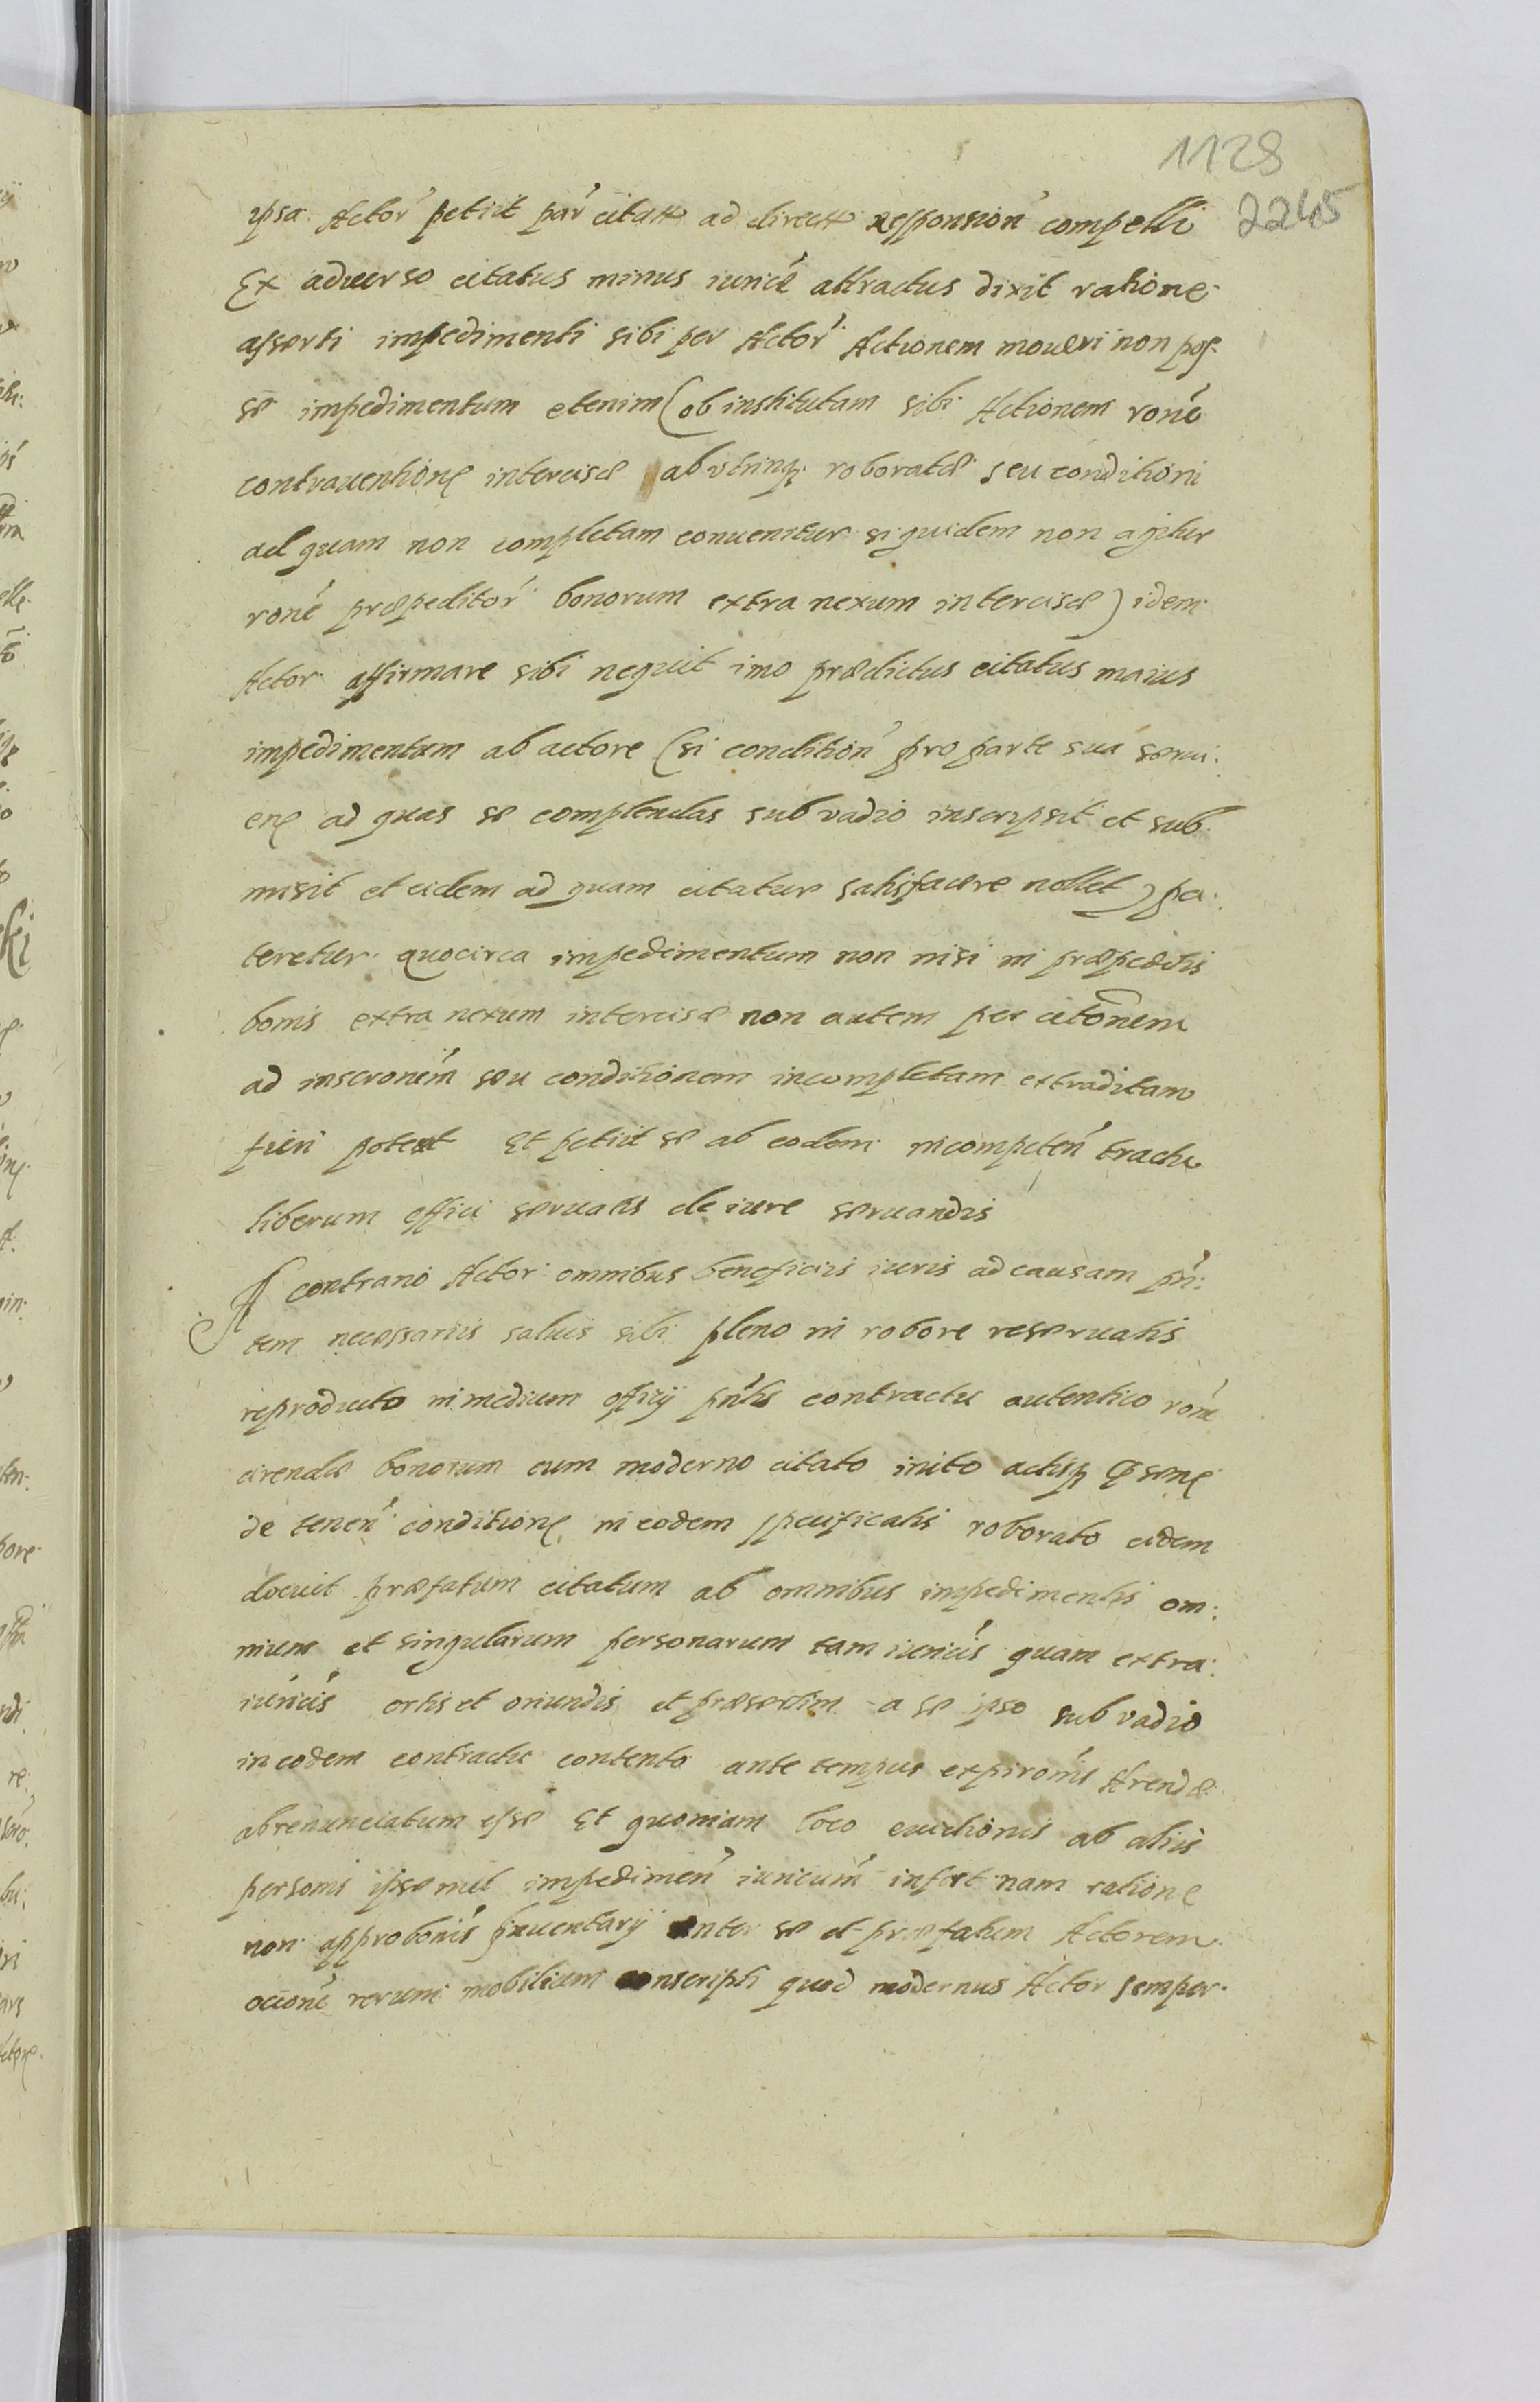 1128
2245
ipsa Actor petiit par citat ad direct responsion compelli
Ex aduerso citatus minus iurice attractus dixit ratione
asserti impedimenti sibi per Actor Actionem moueri non pos:
se impedimentum etenim (ob institutam sibi Actionem rone
contrauentione intercisæ ab utrinq roboratæ seu conditioni
ad quam non completam conuenitur siquidem non agitur
rone præpeditor bonorum extra nexum intercisæ) idem
Actor affirmare sibi nequit imo prædictus citatus maius
impedimentum ab actore (si condition pro parte sua
ad quas se complendas sub vadio inscripsit et sub
misit et eidem ad quam citatur satisfacere nollet) pa:
teretur quocirca impedimentum non nisi in præpeditis
bonis extra nexum intercisæ non autem per citonem
ad inscronem seu conditionem incompletam extraditam
fieri potest Et petiit se ab eodem incompeten tractu
liberum effici seruatis de iure seruandis
A contrario Actor omnibus beneficiis iuris ad causam pn:
tem necessariis saluis sibi pleno in robore reseruatis
reproducto in medium officij pntis contractu autentico rone
arendæ bonorum cum moderno citato inito actisq
de tenen conditione in eodem specificatis roborato eidem
docuit præfatum citatum ab omnibus impedimentis om:
nium et singularum personarum tam iuricis quam extra:
iuricis ortis et oriundis et præsertim a se ipso sub vadio
in eodem contractu contento ante tempus expironis Arendæ
abrenunciatum esse Et quoniam loco euictionis ab aliis
personis ipsemet impedimen iuricum infert nam ratione
non approbonis Inuentarij inter se et præfatum Actorem
occione rerum mobilium conscripti quod modernus Actor semper